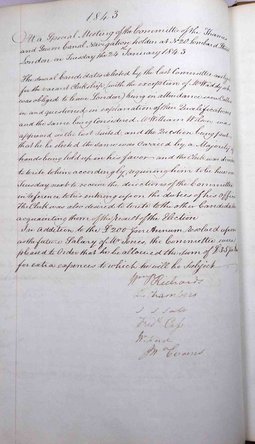 1843
At a Special Meeting of the Committee of the Thames
and Severn Canal Navigation holden at No 20 Lombard Street
London on Tuesday the 24th January 1843
The several Candidates selected by the last Committee
for the vacant Clerkship (with the exception of Mr
was obliged to leave London) being in attendance were called
in and questioned in explanation of their Qualifications
and the same being considered. Mr William
appeared with the best suited and the Question being put
that he be elected the same was carried by a Majority of
hands being held up in his favor and the Clerk was directed
to write to him accordingly, requiring him to be here on
Tuesday next to receive the directions of the Committee
in reference to his entering upon the duties of his office
The Clerk was also desired to write to the other Candidates
acquainting them of the result of the Election
In Addition to the £200 per Annum, resolved upon
as the future Salary of Mr Jones, the Committee were
pleased to Order that he be allowed the sum of £35 per
for extra expences to which he will be subject
Wm Richards
Chambers